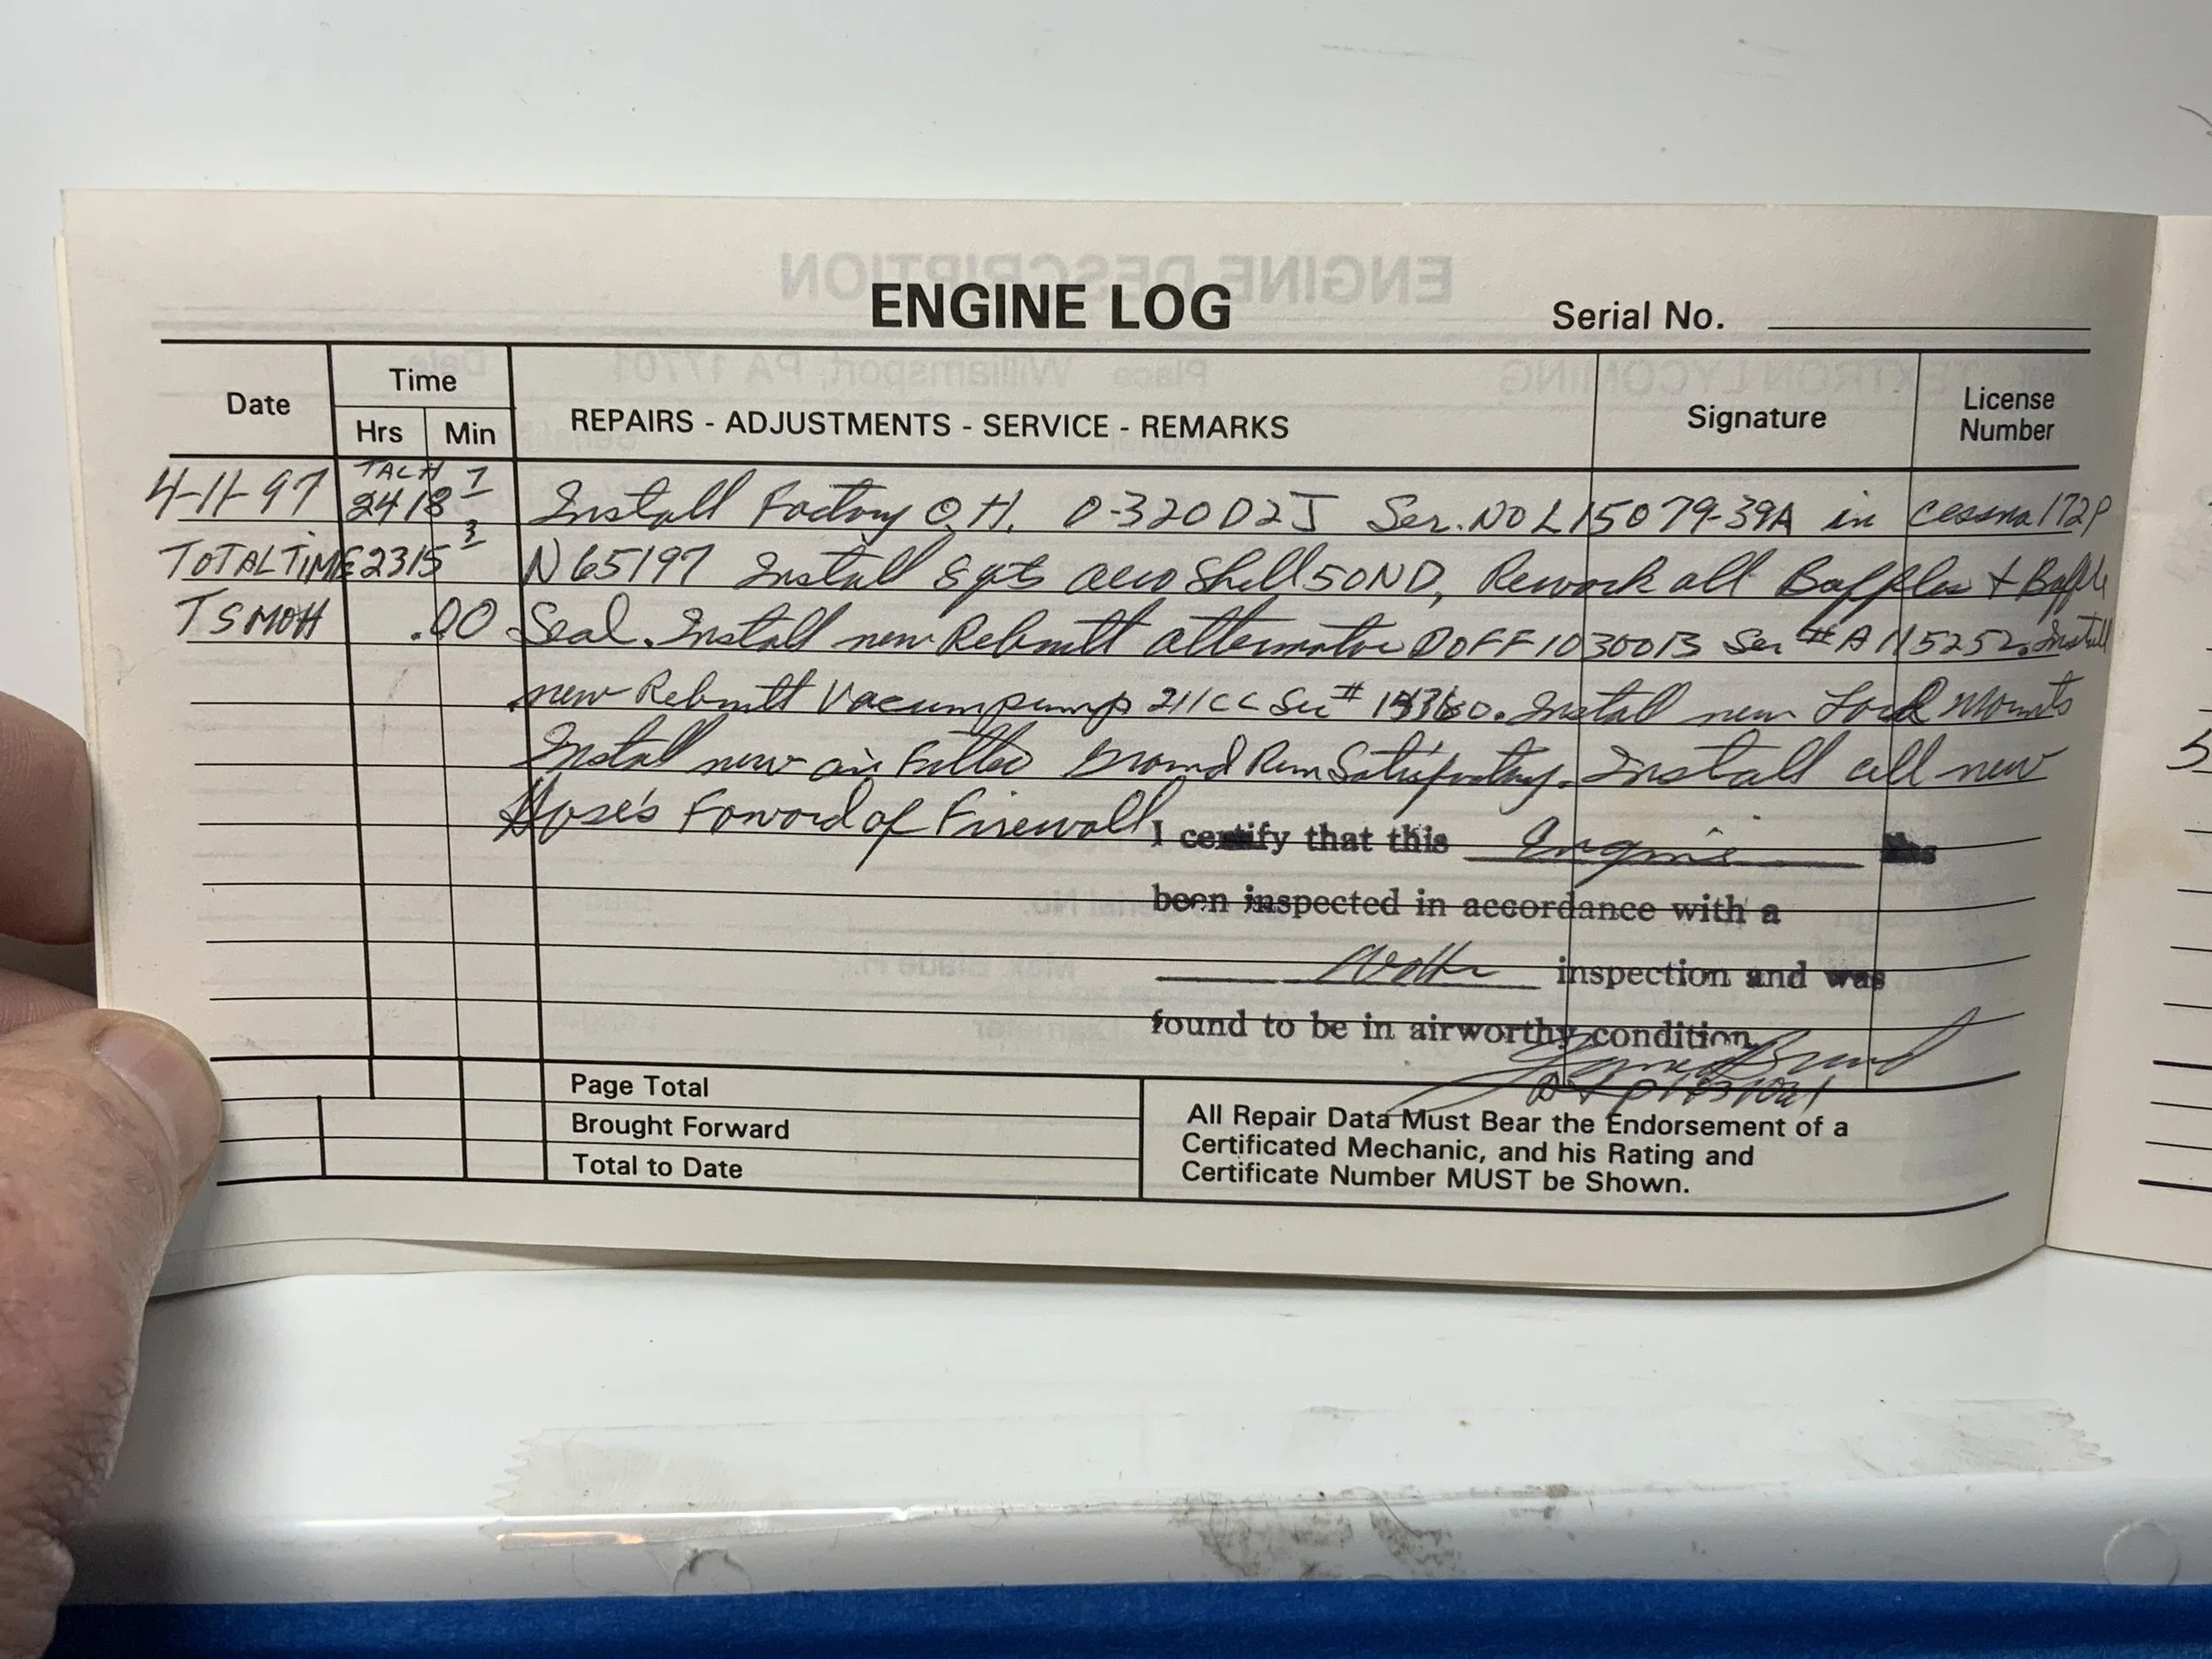 ENGINE DESCRIPTION
ENGINE LOG
Serial No.
TEXTRON LYCOMING Place Williamsport, PA 17701 Date
Date
Time
Hrs Min
REPAIRS - ADJUSTMENTS - SERVICE - REMARKS
Signature
License
Number
TACH
4-11-97 2418 7 Install Factory O.H. O-320D2J Ser. No L15079-39A in Cessna 172P
TOTAL TIME 2315 3 N65197 Install 8 qts aero Shell 50ND, Rework all Baffles + Baffle
TSMOH .00 Seal. Install new Rebuilt alternator DOFF10300B Ser # A115252. Install
new Rebuilt Vacum pump 211CC Ser # Install new Lord Mounts
Install new air Filter Ground Run Satisfactory. Install all new
Hose's Forword of Firewall
I certify that this Engine has
been inspected in accordance with a
inspection and was
found to be in airworthy condition.
Page Total
Brought Forward
Total to Date
All Repair Data Must Bear the Endorsement of a
Certificated Mechanic, and his Rating and
Certificate Number MUST be Shown.